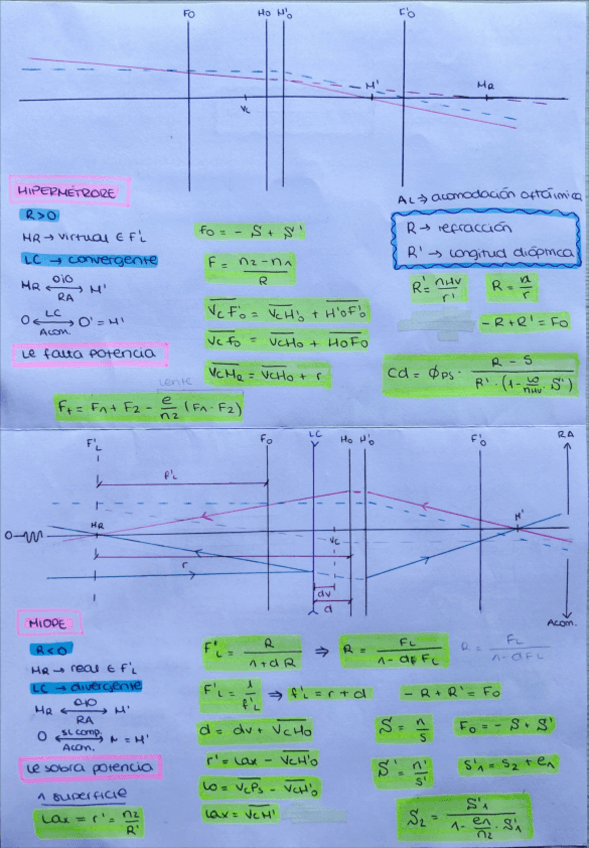 Fo Ho H'o F'o
VC M' MR
HIPERMÉTROPE
R>0
MR → virtual ∈ F'L
LC → convergente
MR ⟷ M'
ojo
RA
O ⟷ O' = M'
LC
Acom.
Le falta potencia
Fo = - S + S'
F = n2 - n1 / R
VcF'o = VcH'o + H'oF'o
VcFo = VcHo + HoFo
VcMR = VcHo + r
Lente
Ft = F1 + F2 - e/n2 (F1 · F2)
AL → acomodación oftálmica
R → refracción
R' → longitud dióptrica
R' = nHV / r'
R = n / r
-R + R' = Fo
Cd = ΦPS · R - S / R' · (1 - ω/nHV S')
F'L Fo LC Ho H'o F'o RA
f'L
O MR VC M'
r
dv
d
Acom.
MIOPE
R<0
MR → real ∈ F'L
LC → divergente
MR ⟷ M'
ojo
RA
O ⟷ N = M'
si comp.
Acom.
Le sobra potencia
1 superficie
Lax = r' = n2 / R'
F'L = R / 1 + d R ⇒ R = FL / 1 - d FL
R = FL / 1 - d FL
F'L = 1 / f'L ⇒ f'L = r + d
-R + R' = Fo
d = dv + VcHo
S = n / s
Fo = - S + S'
r' = Lax - VcH'o
S' = n' / s'
s'1 = s2 + e1
ω = VcPs - VcH'o
Lax = VcM'
S2 = S'1 / 1 - e1/n2 · S'1